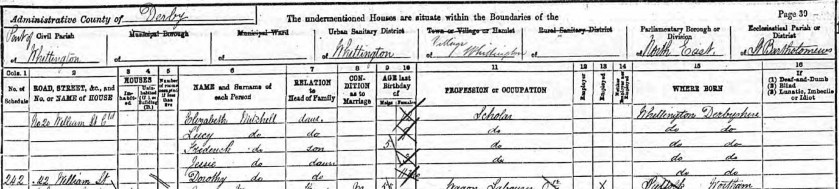 Administrative County of Derby The undermentioned Houses are situate within the Boundaries of the Page 39
Part of Civil Parish Municipal Borough Municipal Ward Urban Sanitary District Town or Village or Hamlet Rural Sanitary District Parliamentary Borough or Division Ecclesiastical Parish or District
of Whittington of of of Whittington Village of Whittington of of North East of St Bartholomews
Cols. 1 2 3 4 5 6 7 8 9 10 11 12 13 14 15 16
No. of Schedule ROAD, STREET, &c., and No. or NAME of HOUSE HOUSES Inhabited Uninhabited (U.) or Building (B.) Number of rooms occupied if less than five NAME and Surname of each Person RELATION to Head of Family CONDITION as to Marriage AGE last Birthday of Males Females PROFESSION or OCCUPATION Employer Employed WHERE BORN If (1) Deaf-and-Dumb (2) Blind (3) Lunatic, Imbecile or Idiot
No 20 William St Ctd Elizabeth Mitchell daur Scholar Whittington Derbyshire
Lucy do do do do do
Frederick do son 5 do do do
Jessie do daur do do
Dorothy do do do do
242 22 William St